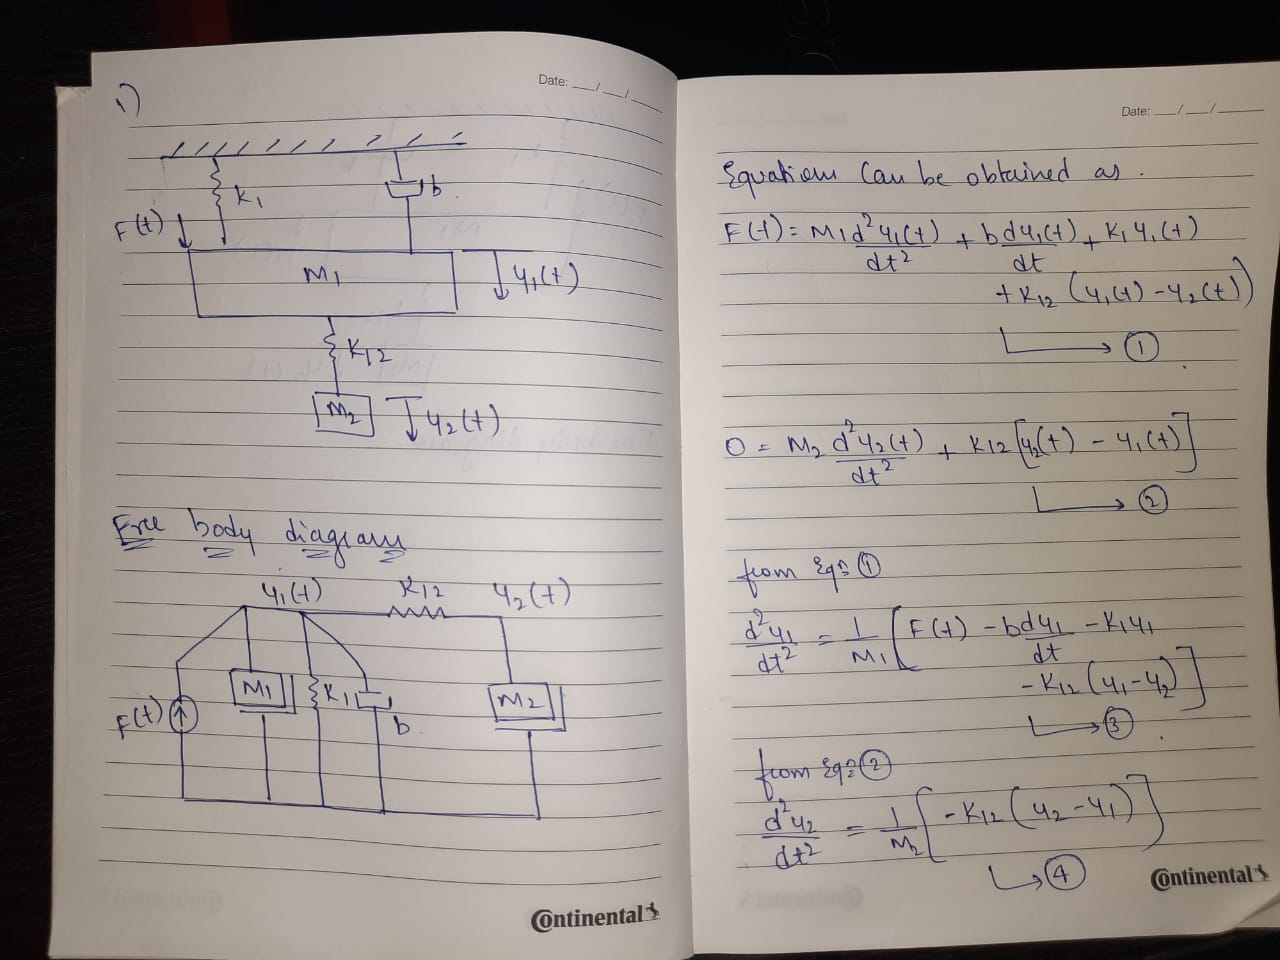 Date: __/__/__
1)
K1
b
F(t)
M1
y1(t)
K12
M2
y2(t)
Free body diagram
y1(t)
K12
y2(t)
F(t)
M1
K1
b
M2
Continental
Date: __/__/__
Equations Can be obtained as.
F(t) = M1 d²y1(t)/dt² + b dy1(t)/dt + K1 y1(t)
+ K12 (y1(t) - y2(t))
→ ①
0 = M2 d²y2(t)/dt² + K12 [y2(t) - y1(t)]
→ ②
from Eqn ①
d²y1/dt² = 1/M1 [F(t) - b dy1/dt - K1y1
- K12 (y1 - y2)]
→ ③
from Eqn ②
d²y2/dt² = 1/M2 [-K12 (y2 - y1)]
→ ④
Continental